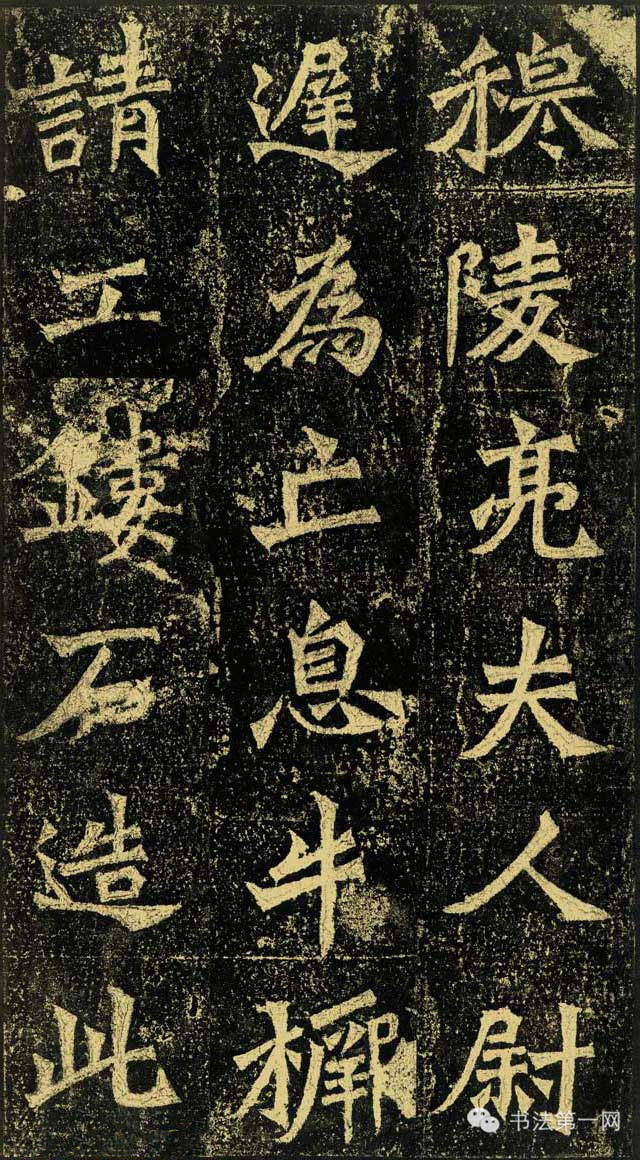 穆陵亮夫人尉
遲為亡息牛橛
請工鏤石造此
书法第一网